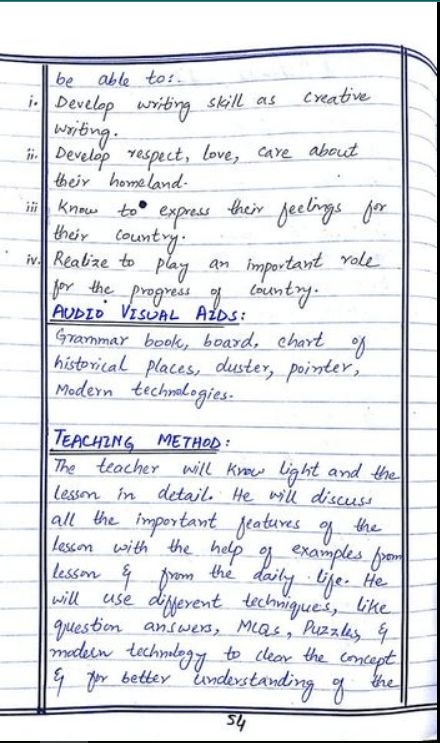 be able to:.
i. Develop writing skill as creative
writing.
ii. Develop respect, love, care about
their homeland.
iii Know to express their feelings for
their country.
iv. Realize to play an important role
for the progress of country.
AUDIO VISUAL AIDS:
Grammar book, board, chart of
historical places, duster, pointer,
Modern technologies.
TEACHING METHOD:
The teacher will know light and the
lesson in detail. He will discuss
all the important features of the
lesson with the help of examples from
lesson & from the daily life. He
will use different techniques, like
question answers, MCQs, Puzzles, &
modern technology to clear the concept
& for better understanding of the
54